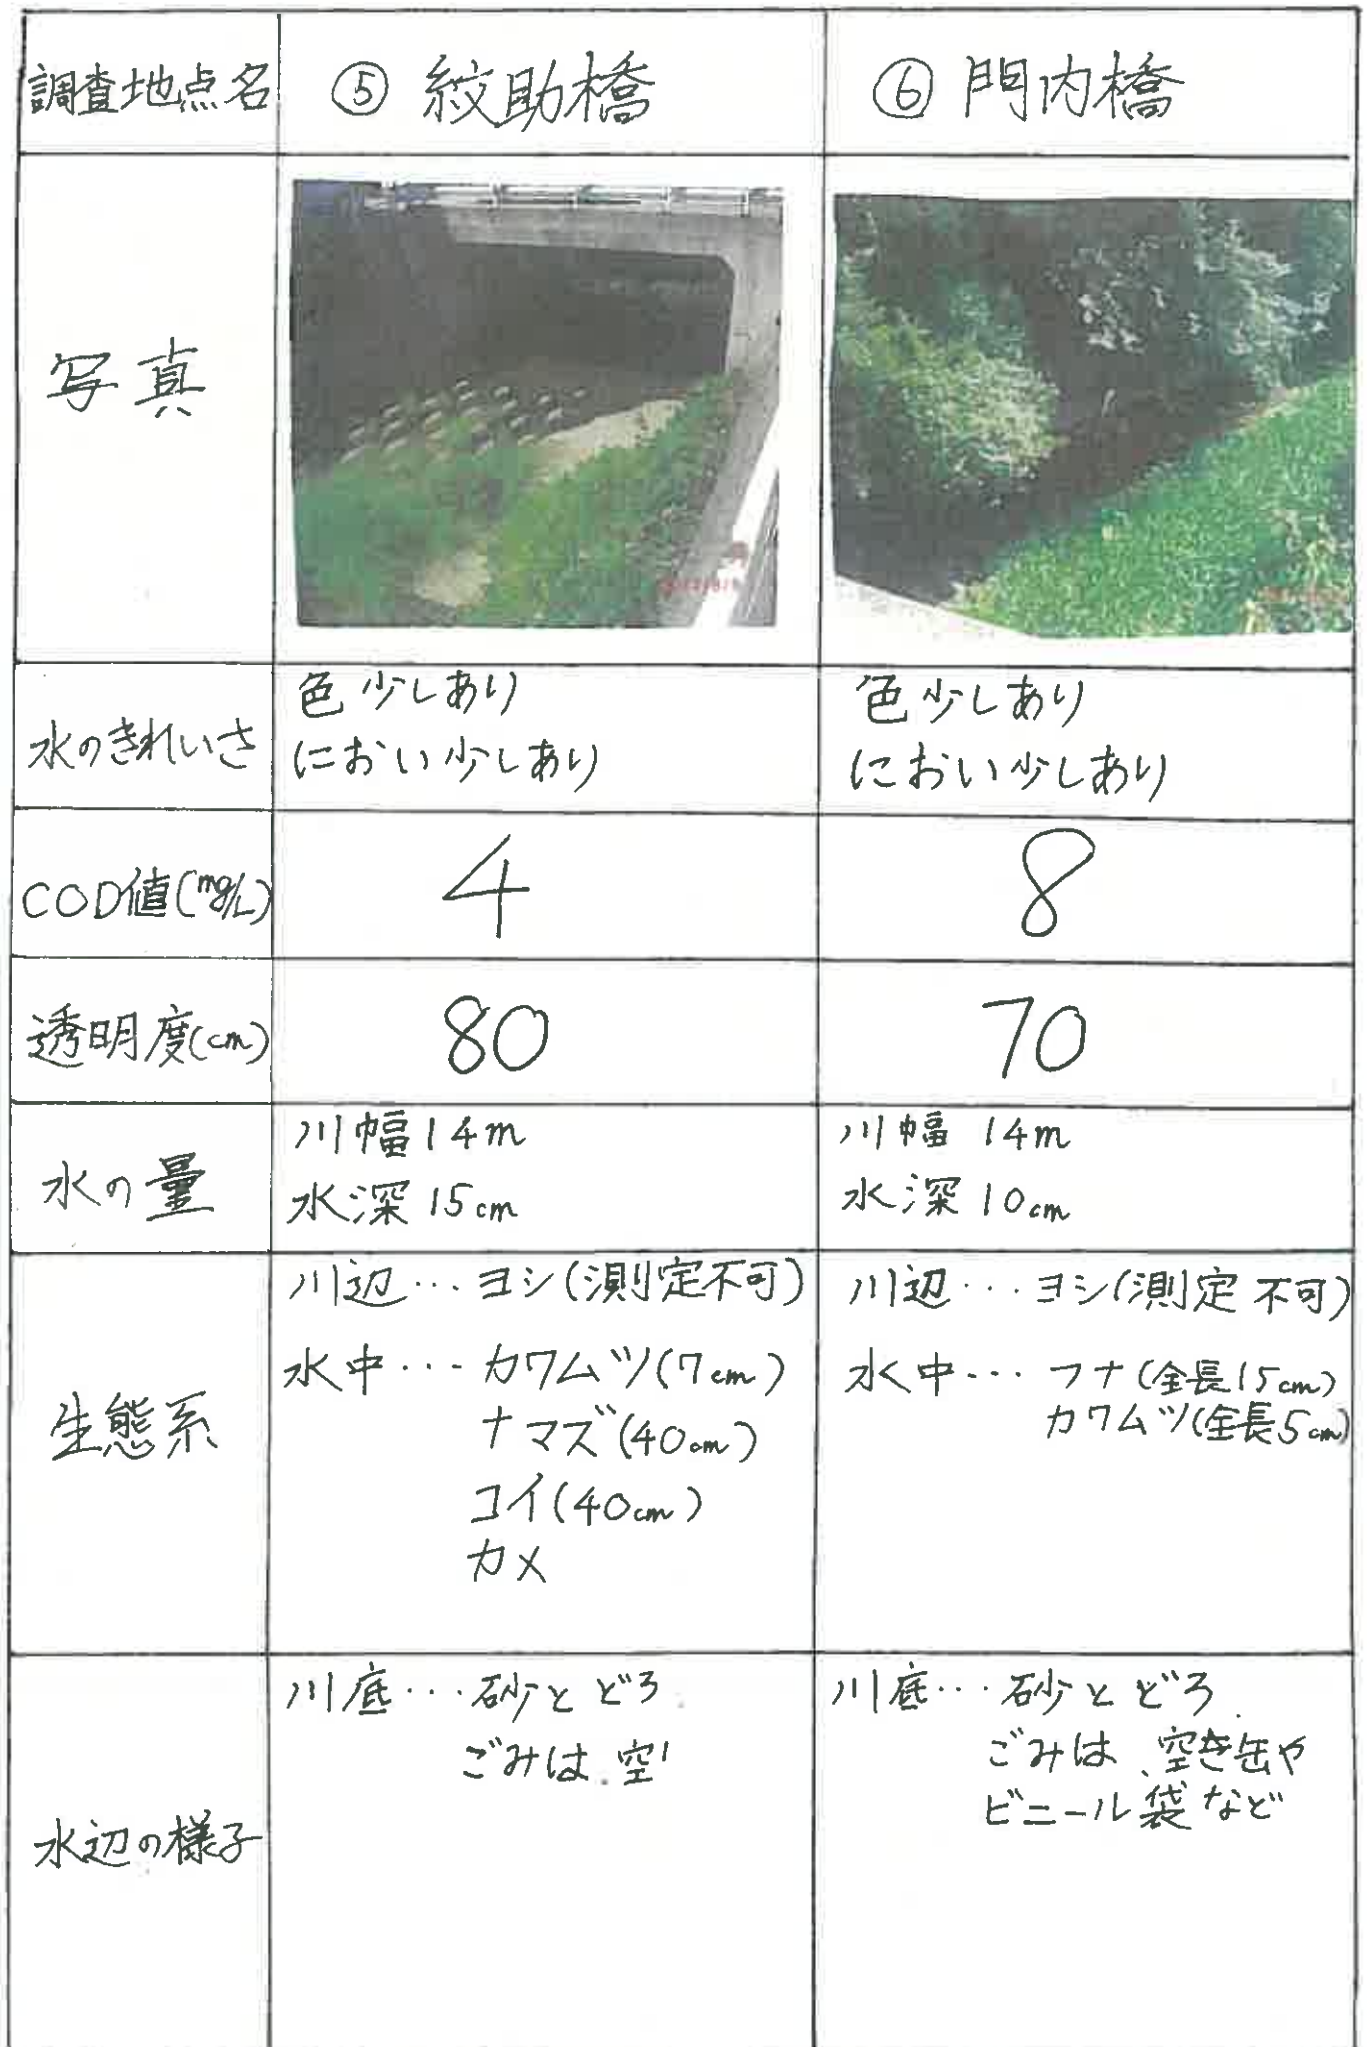 調査地点名
⑤ 絞助橋
⑥ 門内橋
写真
水のきれいさ
色少しあり
におい少しあり
色少しあり
におい少しあり
COD値(mg/L)
4
8
透明度(cm)
80
70
水の量
川幅14m
水深15cm
川幅 14m
水深 10cm
生態系
川辺…ヨシ(測定不可)
水中…カワムツ(7cm)
ナマズ(40cm)
コイ(40cm)
カメ
川辺…ヨシ(測定不可)
水中…フナ(全長15cm)
カワムツ(全長5cm)
水辺の様子
川底…砂とどろ
ごみは、空
川底…砂とどろ
ごみは、空き缶や
ビニール袋など